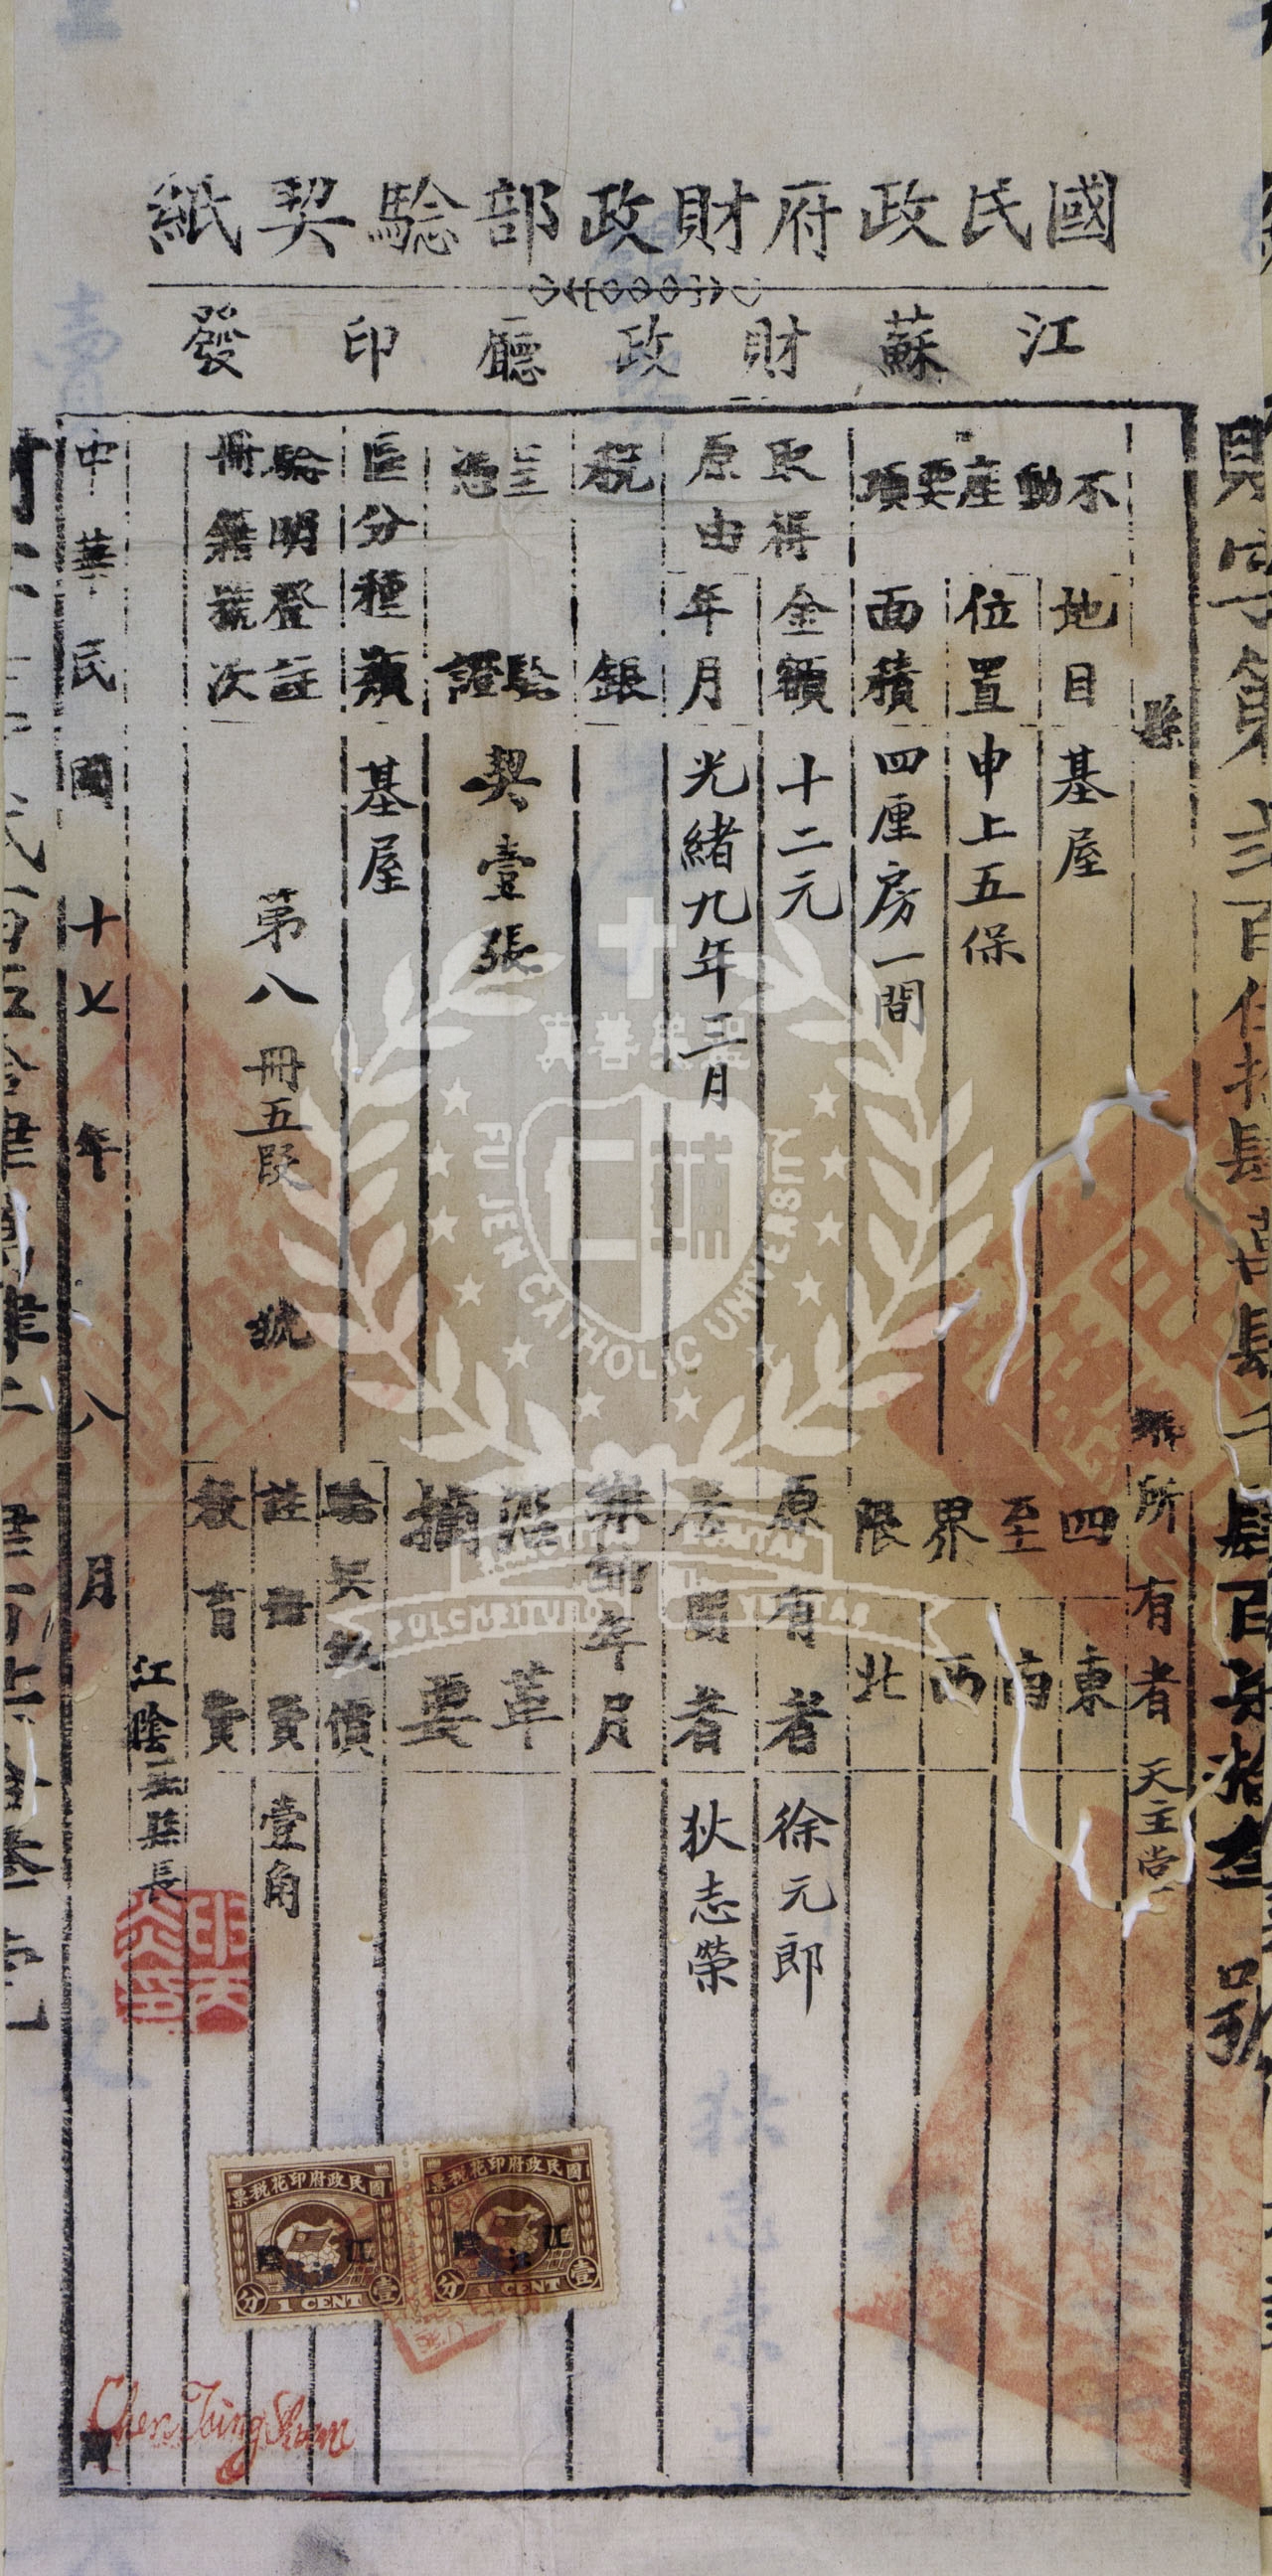 國民政府財政部驗契紙
江蘇財政廳印發
縣
所有者 天主堂
不動產要項
地目 基屋
位置 申上五保
面積 四厘房一間
四至界限
東
南
西
北
取得原由
金額 十二元
年月 光緒九年三月
原有者 徐元郎
居間者 狄志榮
稅銀
年月
呈驗憑證 契壹張
沿革摘要
區分種類 基屋
驗契紙價
註冊費 壹角
教育費
驗明登註冊籍號次 第八冊五段 號
江陰縣縣長
中華民國十七年八月
國民政府印花稅票
江陰
壹分
1 CENT
國民政府印花稅票
江陰
壹分
1 CENT
Chen Tsing Shan
FU JEN CATHOLIC UNIVERSITY
真善美聖